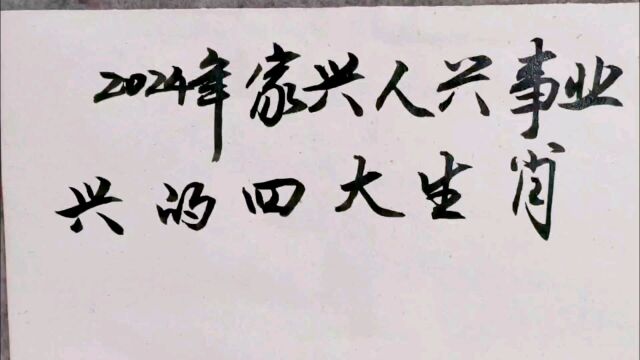 2024年家兴人兴事业
兴的四大生肖